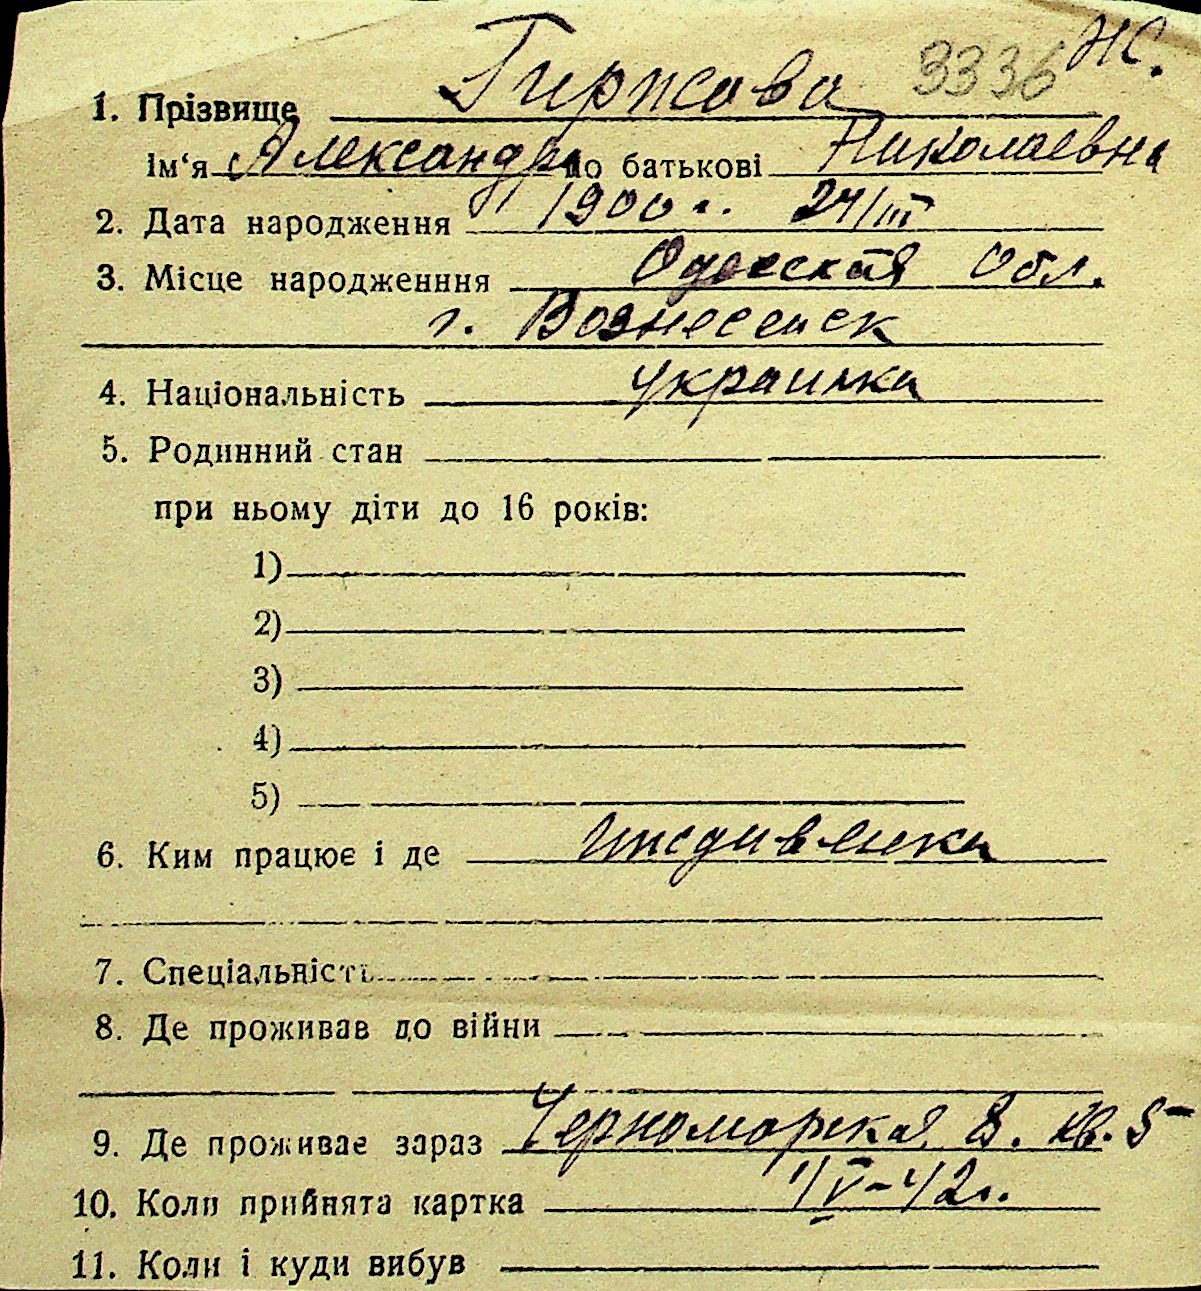 3336 Ж.
1. Прізвище Гиржова
ім‘я Александра по батькові Николаевна
2. Дата народження 1900 г. 24/III
3. Місце народженння Одесская Обл.
г. Вознесенск
4. Національність украинка
5. Родинний стан
при ньому діти до 16 років:
1)
2)
3)
4)
5)
6. Ким працює і де иждивенка
7. Спеціальність
8. Де проживав до війни
9. Де проживає зараз Черноморская 8. кв. 5
10. Коли прийнята картка 1/V-42г.
11. Коли і куди вибув